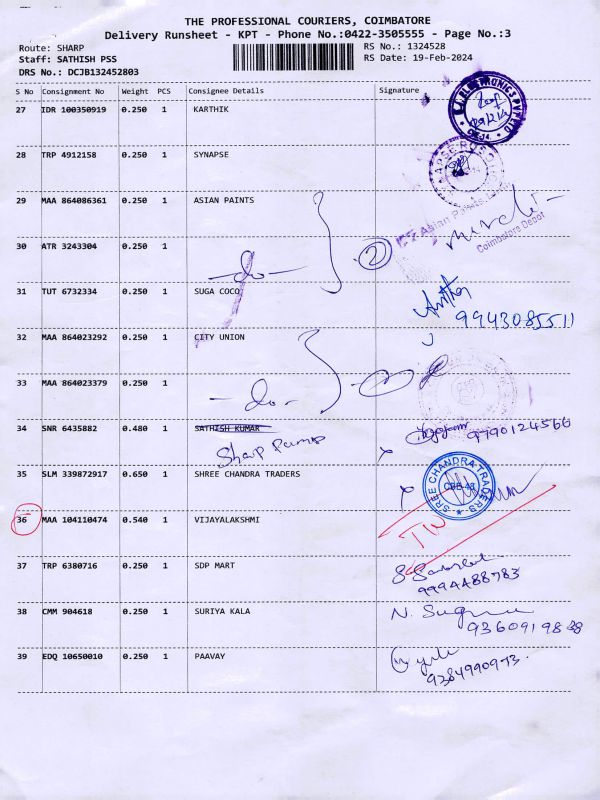 THE PROFESSIONAL COURIERS, COIMBATORE
Delivery Runsheet - KPT - Phone No.:0422-3505555 - Page No.:3
Route: SHARP RS No.: 1324528
Staff: SATHISH PSS RS Date: 19-Feb-2024
DRS No.: DCJB132452803
S No Consignment No Weight PCS Consignee Details Signature
27 IDR 100350919 0.250 1 KARTHIK
28 TRP 4912158 0.250 1 SYNAPSE
29 MAA 864086361 0.250 1 ASIAN PAINTS
Asian Paints
Coimbatore Depot
30 ATR 3243304 0.250 1 -do- 2
31 TUT 6732334 0.250 1 SUGA COCO
9943085511
32 MAA 864023292 0.250 1 CITY UNION
33 MAA 864023379 0.250 1 -do-
34 SNR 6435882 0.480 1 SATHISH KUMAR
Sharp Pumps
9790124566
35 SLM 339872917 0.650 1 SHREE CHANDRA TRADERS
SREE CHANDRA TRADERS
CBE-43
36 MAA 104110474 0.540 1 VIJAYALAKSHMI
37 TRP 6380716 0.250 1 SDP MART
9994488783
38 CMM 904618 0.250 1 SURIYA KALA
39 EDQ 10650010 0.250 1 PAAVAY